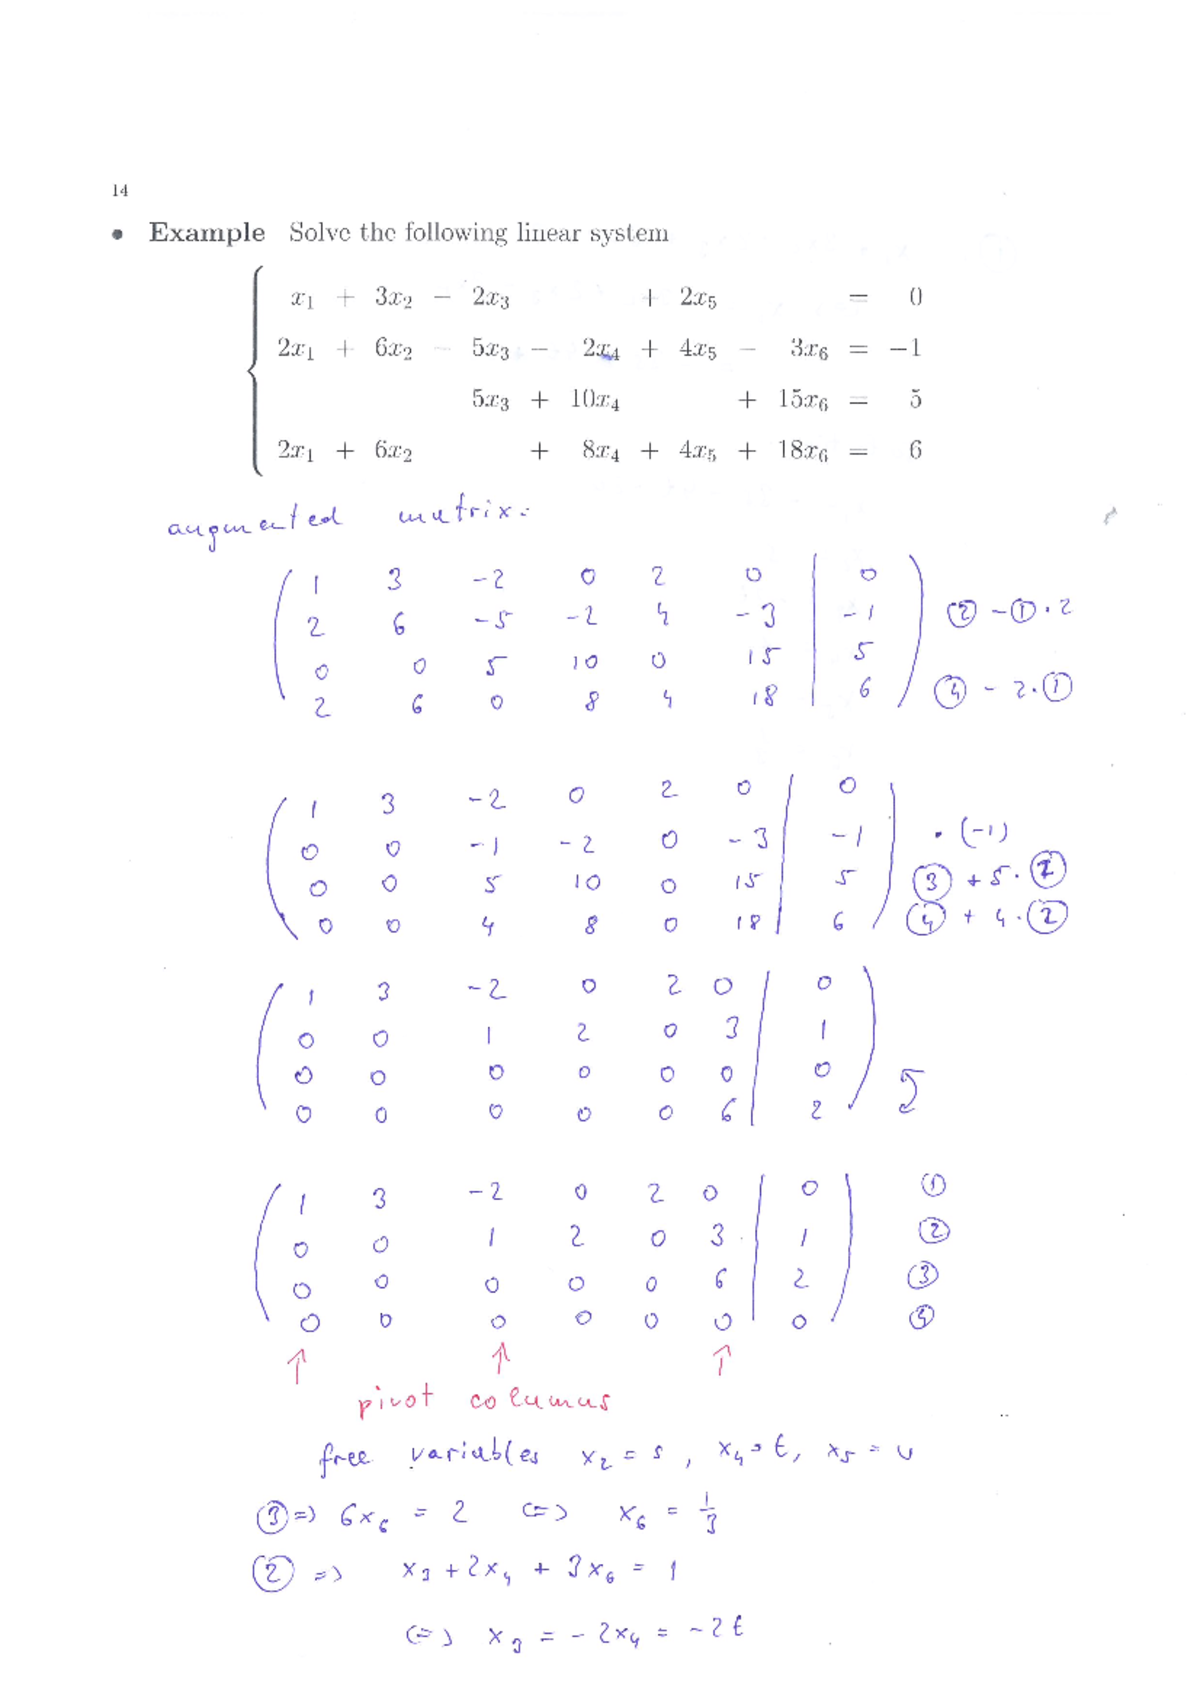 14
• Example Solve the following linear system
x₁ + 3x₂ − 2x₃ + 2x₅ = 0
2x₁ + 6x₂ − 5x₃ − 2x₄ + 4x₅ − 3x₆ = −1
5x₃ + 10x₄ + 15x₆ = 5
2x₁ + 6x₂ + 8x₄ + 4x₅ + 18x₆ = 6
augmented matrix:
( 1 3 −2 0 2 0 | 0 )
2 6 −5 −2 4 −3 | −1 ② − ① · 2
0 0 5 10 0 15 | 5
2 6 0 8 4 18 | 6 ④ − 2 · ①
( 1 3 −2 0 2 0 | 0 )
0 0 −1 −2 0 −3 | −1 · (−1)
0 0 5 10 0 15 | 5 ③ + 5 · ②
0 0 4 8 0 18 | 6 ④ + 4 · ②
( 1 3 −2 0 2 0 | 0 )
0 0 1 2 0 3 | 1
0 0 0 0 0 0 | 0
0 0 0 0 0 6 | 2
( 1 3 −2 0 2 0 | 0 ) ①
0 0 1 2 0 3 | 1 ②
0 0 0 0 0 6 | 2 ③
0 0 0 0 0 0 | 0 ④
↑ ↑ ↑
pivot columns
free variables x₂ = s , x₄ = t, x₅ = u
③ => 6x₆ = 2 <=> x₆ = 1/3
② => x₃ + 2x₄ + 3x₆ = 1
<=> x₃ = − 2x₄ = −2t